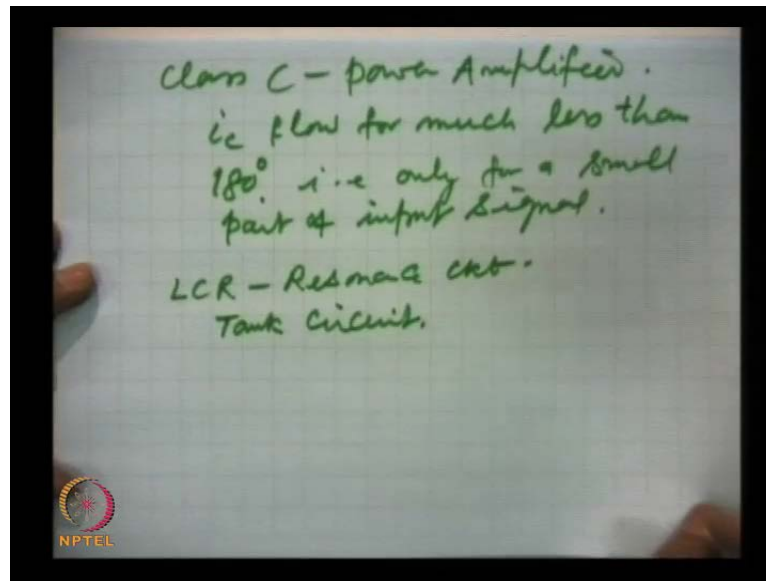 Class C - Power Amplifier.
ic flow for much less than
180°. i.e only for a small
part of input signal.
LCR - Resonance ckt.
Tank Circuit.
NPTEL